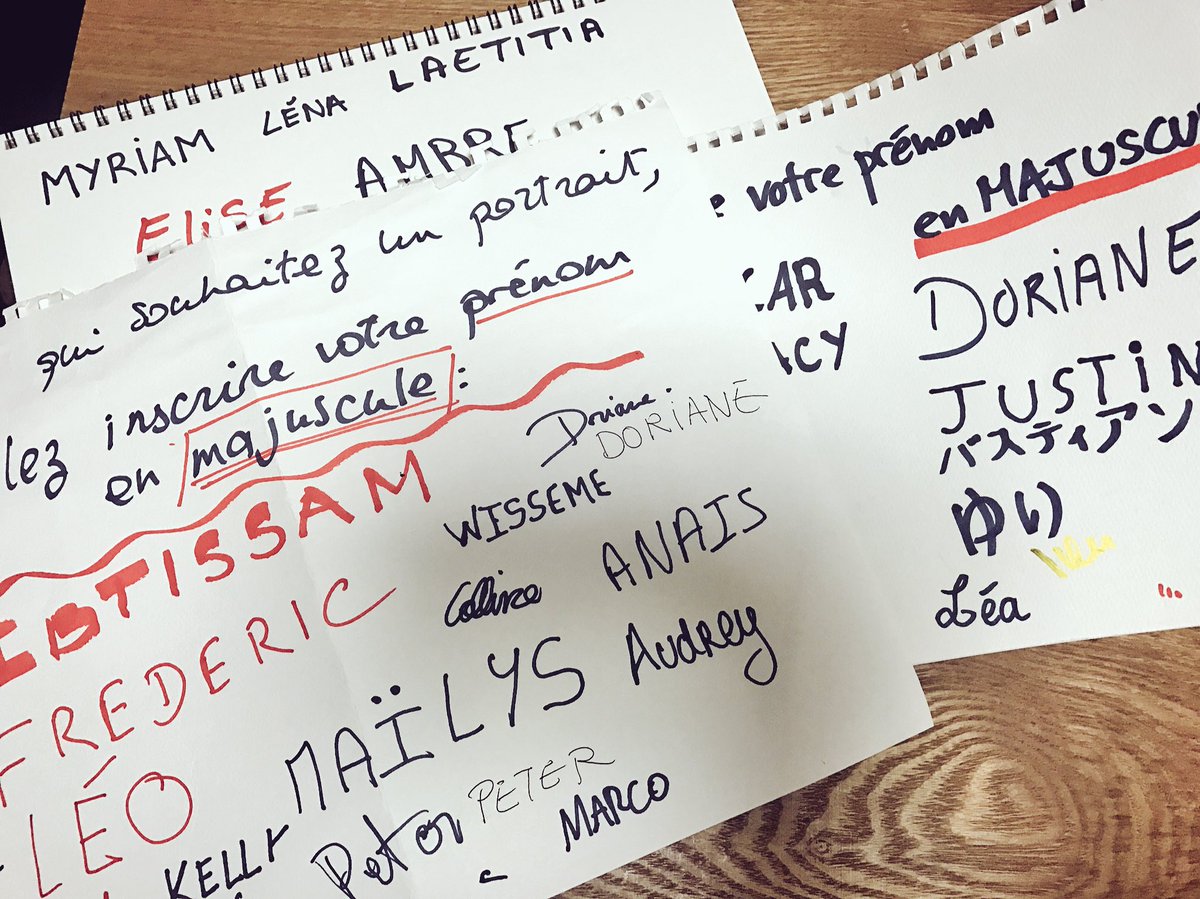 MYRIAM LÉNA LAETITIA
ELISE AMBRE
qui souhaitez un portrait,
lez inscrire votre prénom
en majuscule :
Doriane
DORIANE
IBTISSAM
WISSEME
FREDERIC
Colline ANAIS
LÉO
MAÏLYS Audrey
KELLY
Peter PETER
MARCO
votre prénom
en MAJUSCU
AR
CY
DORIANE
JUSTIN
バスティアン
ゆり
Léa